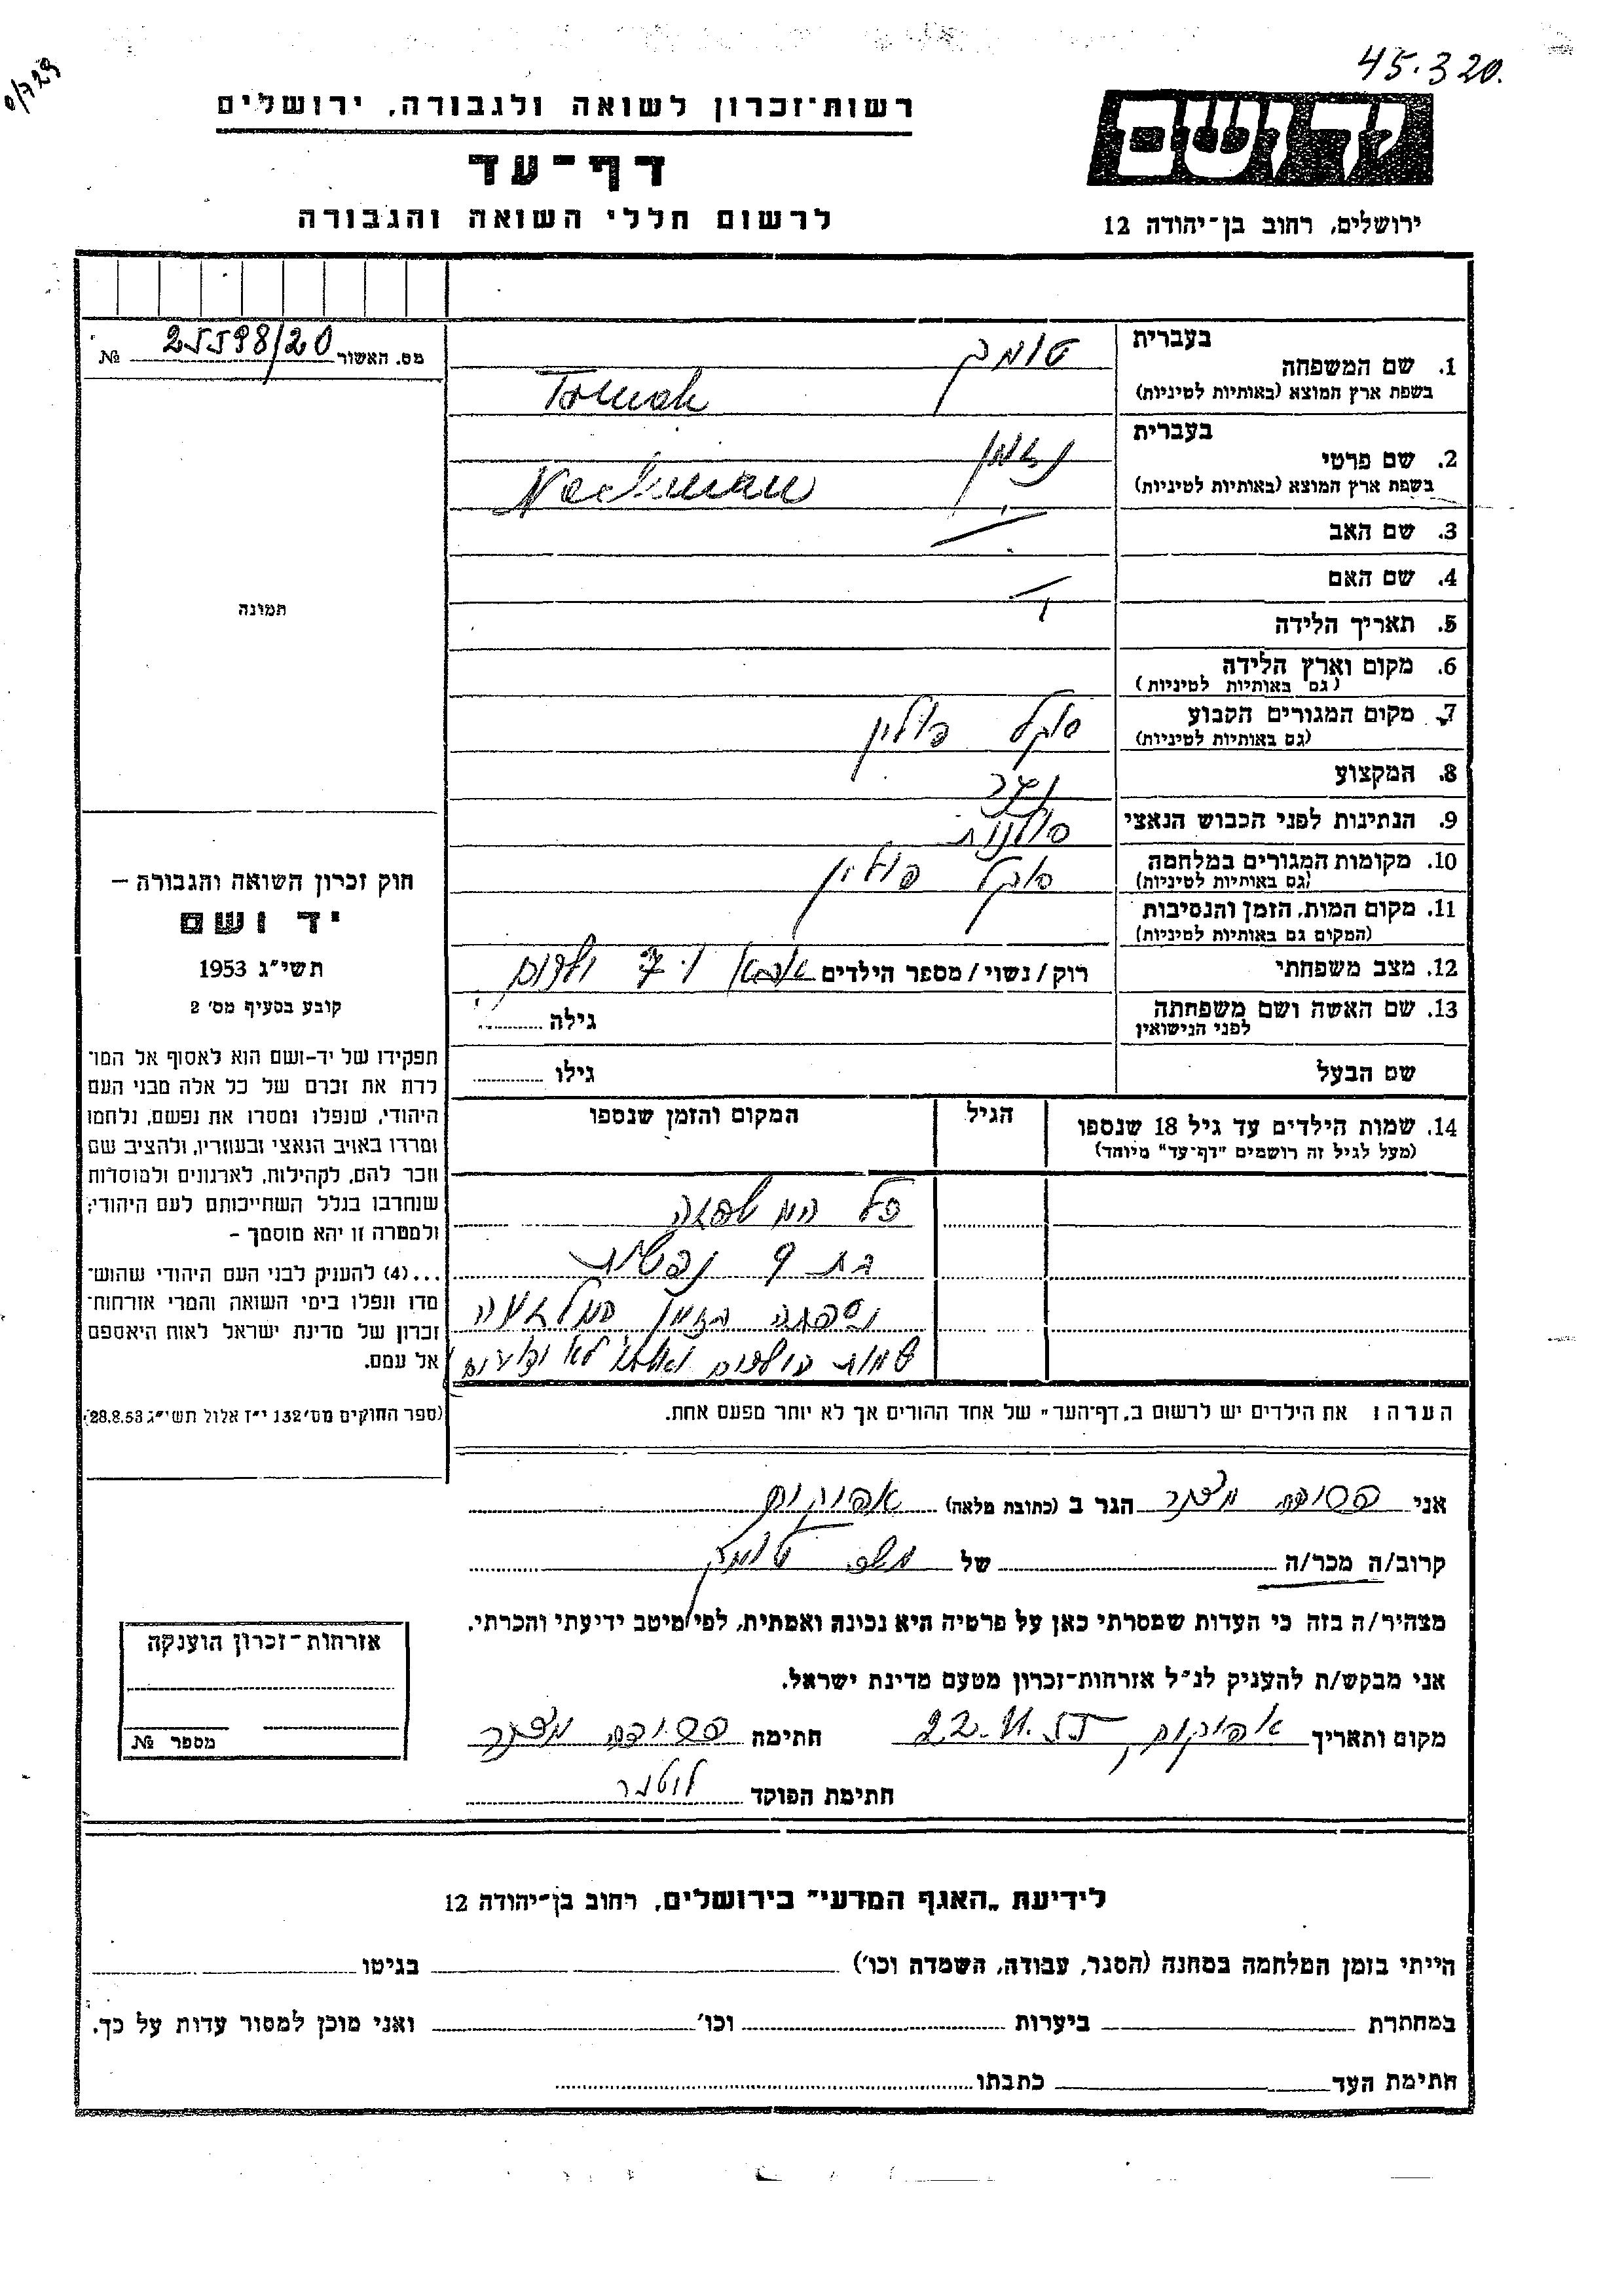 45.320.
0/729
רשות־זכרון לשואה ולגבורה, ירושלים
דף־עד
לרשום חללי השואה והגבורה
ידושם
ירושלים, רחוב בן־יהודה 12
מס. האשור 25598/20 №
תמונה
חוק זכרון השואה והגבורה —
יד ושם
תשי״ג 1953
קובע בסעיף מס׳ 2
תפקידו של יד-ושם הוא לאסוף אל המו־
לדת את זכרם של כל אלה מבני העם
היהודי, שנפלו ומסרו את נפשם, נלחמו
ומרדו באויב הנאצי ובעוזריו, ולהציב שם
וזכר להם, לקהילות, לארגונים ולמוסדות
שנחרבו בגלל השתייכותם לעם היהודי;
ולמטרה זו יהא מוסמך -
...(4) להעניק לבני העם היהודי שהוש־
מדו ונפלו בימי השואה והמרי אזרחות־
זכרון של מדינת ישראל לאות היאספם
אל עמם.
(ספר החוקים מס׳ 132 י״ז אלול תשי״ג 28.8.53)
1. שם המשפחה בעברית טומך
בשפת ארץ המוצא (באותיות לטיניות) Tomak
2. שם פרטי בעברית נחמן
בשפת ארץ המוצא (באותיות לטיניות) Nachman
3. שם האב
4. שם האם
5. תאריך הלידה
6. מקום וארץ הלידה
(גם באותיות לטיניות)
7. מקום המגורים הקבוע סוקל פולין
(גם באותיות לטיניות)
8. המקצוע נגר
9. הנתינות לפני הכבוש הנאצי פולנית
10. מקומות המגורים במלחמה סוקל פולין
(גם באותיות לטיניות)
11. מקום המות, הזמן והנסיבות
(המקום גם באותיות לטיניות)
12. מצב משפחתי רוק/נשוי/מספר הילדים אבא ו־7 ילדים
13. שם האשה ושם משפחתה לפני הנישואין גילה
שם הבעל גילו
14. שמות הילדים עד גיל 18 שנספו הגיל המקום והזמן שנספו
(מעל לגיל זה רושמים "דף־עד" מיוחד)
כל המשפחה
בת 9 נפשות
נספתה בזמן המלחמה
שמות הילדים לא
הערה: את הילדים יש לרשום ב„דף־העד״ של אחד ההורים אך לא יותר מפעם אחת.
אני מצגר הגר ב (כתובת מלאה) אפיקים
קרוב/ה מכר/ה של משפ. טומך
מצהיר/ה בזה כי העדות שמסרתי כאן על פרטיה היא נכונה ואמתית, לפי מיטב ידיעתי והכרתי.
אני מבקש/ת להעניק לנ״ל אזרחות־זכרון מטעם מדינת ישראל.
מקום ותאריך אפיקים, 22.11.55 חתימה מצגר
חתימת הפוקד
אזרחות־זכרון הוענקה
מספר №
לידיעת „האגף המדעי״ בירושלים, רחוב בן־יהודה 12
הייתי בזמן המלחמה במחנה (הסגר, עבודה, השמדה וכו׳) בגיטו
במחתרת ביערות וכו׳ ואני מוכן למסור עדות על כך.
חתימת העד כתבתו